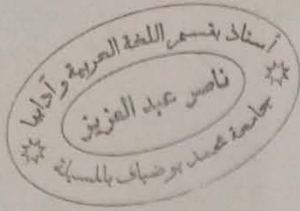 أستاذ بقسم اللغة العربية وآدابها
ناصر عبد العزيز
جامعة محمد بوضياف بالمسيلة